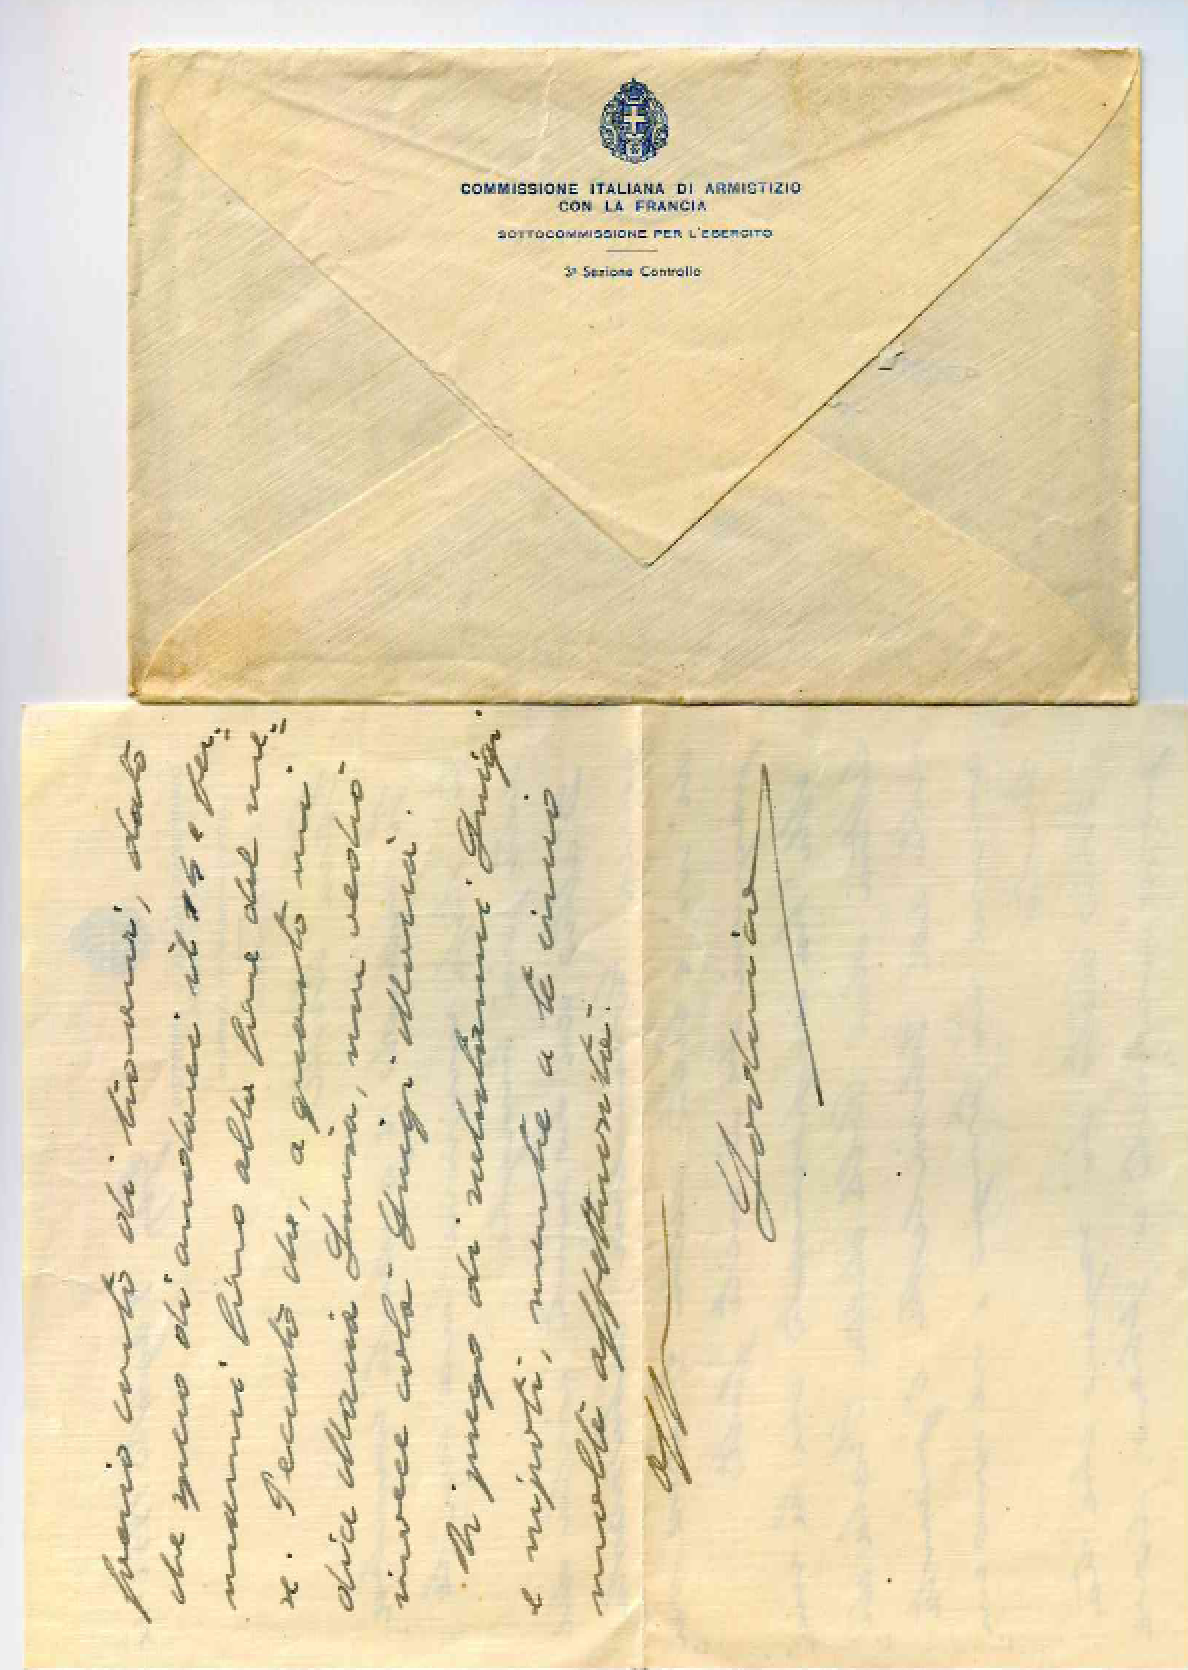 COMMISSIONE ITALIANA DI ARMISTIZIO
CON LA FRANCIA
SOTTOCOMMISSIONE PER L'ESERCITO
3ª Sezione Controllo
conto di trovarvi, dato
che penso di andarci il 15 e
fino alla fine del me=
se. Peccato che, a quanto mi
dice Maria Luisa, non vedrò
invece costà Luigi Maria.
Ti prego di salutarmi Luigi
e nipoti, mentre a te invio
molte affettuosità.
aff